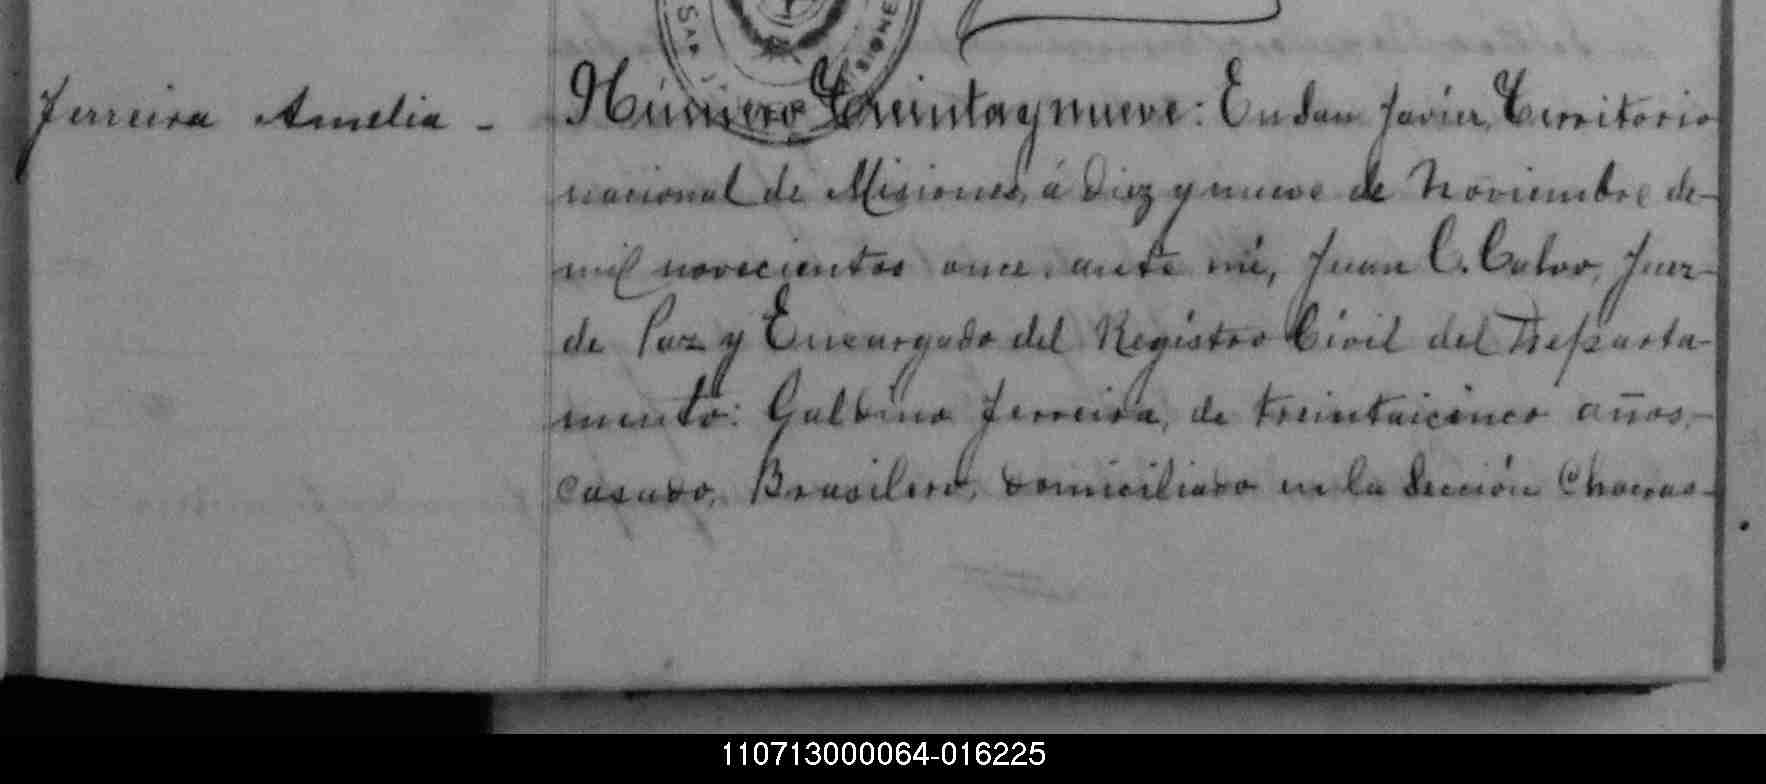 SAN J
SIONE
Ferreira Amelia -
Número Treinta y nueve: En San Javier, Territorio
nacional de Misiones, á diez y nueve de Noviembre de-
mil novecientos once, ante mí, Juan C. Calvo, Juez-
de Paz y Encargado del Registro Civil del Departa-
mento: Galvino Ferreira, de treintaicinco años,-
casado, Brasilero, domiciliado en la Sección Chacras-
110713000064-016225